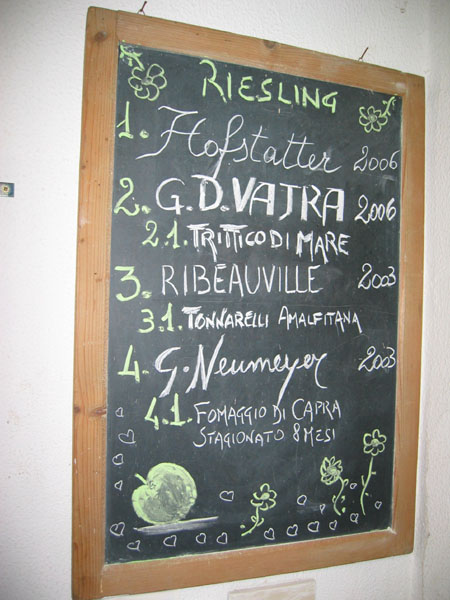 RIESLING
1. Hofstatter 2006
2. G.D. VAJRA 2006
2.1. TRITTICO DI MARE
3. RIBEAUVILLE 2003
3.1. TONNARELLI AMALFITANA
4. G. Neumeyer 2003
4.1. FOMAGGIO DI CAPRA
STAGIONATO 8 MESI